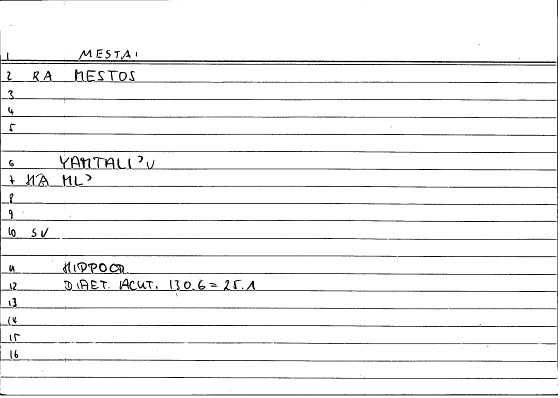 1 MESTA,
2 RA MESTOS
3
4
5
6 YAMTALI'U
7 MA ML'
8
9
10 SV
11 HIPPOCR.
12 DIAET. ACUT. 130.6 = 25.1
13
14
15
16